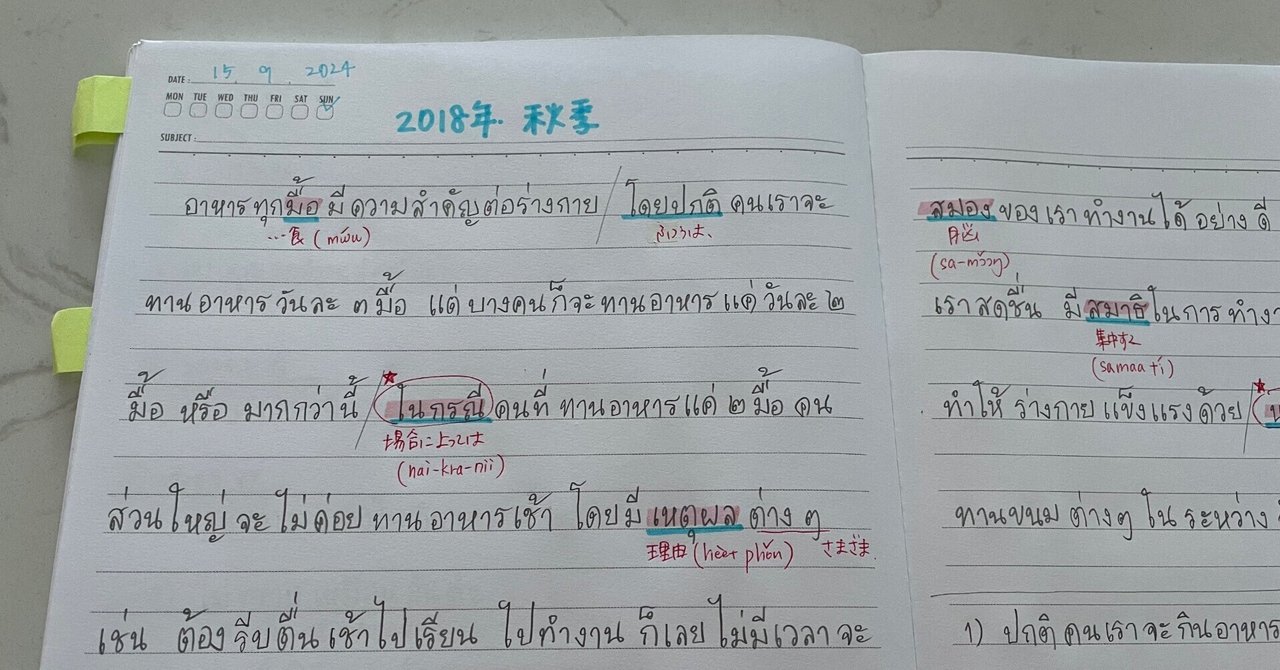 DATE : 15. 9 . 2024
MON TUE WED THU FRI SAT SUN
SUBJECT :
2018年. 秋季
อาหารทุกมื้อ มี ความ สำคัญ ต่อร่างกาย / โดยปกติ คนเราจะ
…食 (mʉ́ʉ) ふつうは、
ทาน อาหาร วันละ ๓ มื้อ แต่ บางคน ก็จะ ทาน อาหาร แค่ วันละ ๒
มื้อ หรือ มากกว่านี้ / ★ ในกรณี คนที่ ทานอาหาร แค่ ๒ มื้อ คน
場合によっては
(nai-kra-nii)
ส่วนใหญ่ จะ ไม่ค่อย ทาน อาหารเช้า โดยมี เหตุผล ต่าง ๆ
理由 (hèet phǒn) さまざま
เช่น ต้อง รีบตื่น เช้าไป เรียน ไปทำงาน ก็เลย ไม่มีเวลา จะ
สมอง ของ เรา ทำงาน ได้ อย่าง ดี
脳
(sa-mɔ̌ɔŋ)
เรา สดชื่น มี สมาธิ ใน การ ทำงา
集中する
(samaa tí)
ทำให้ ร่างกาย แข็งแรงด้วย / ★
ทานขนม ต่างๆ ใน ระหว่าง
1) ปกติ คนเรา จะ กิน อาหาร